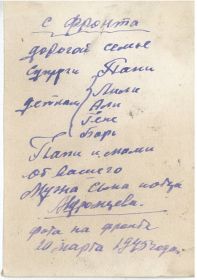 с фронта
дорогой семье
супруги Тани
деткам Лили
Али
Гене
Папи и мами
от вашего
Мужа сына и отца
фота на фронте
20 марта 1945 года